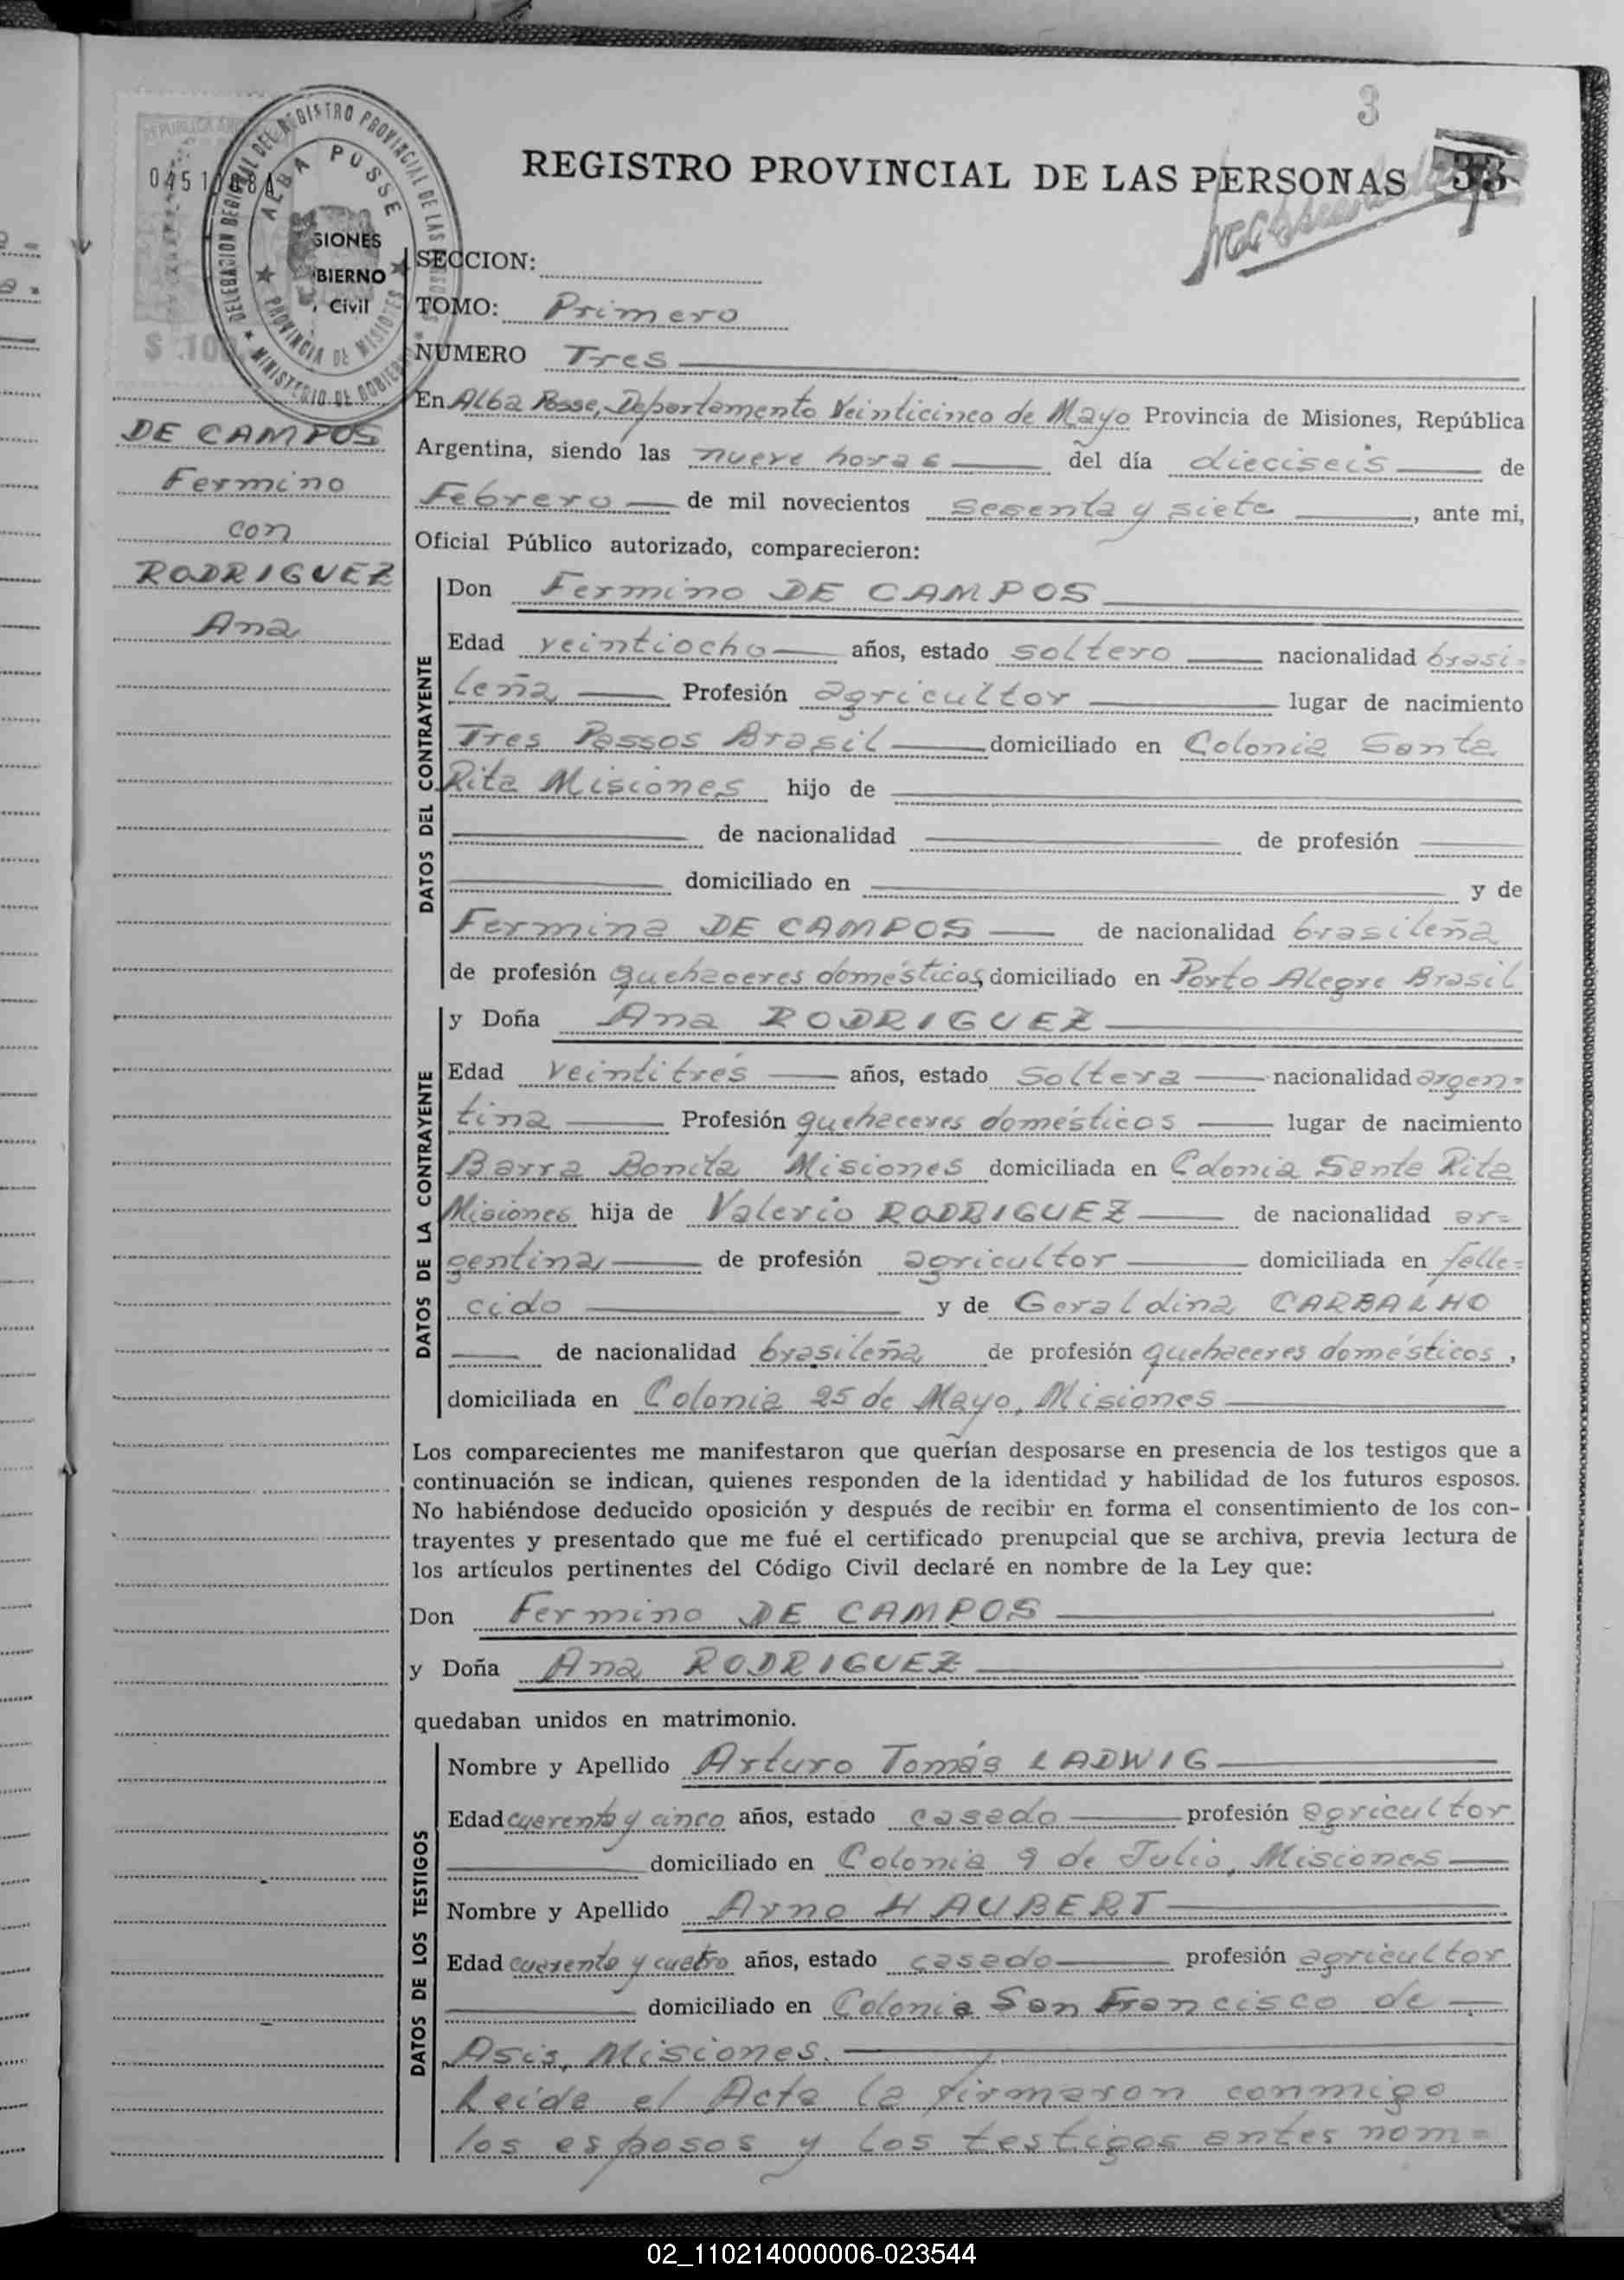 3
REGISTRO PROVINCIAL DE LAS PERSONAS 33
REPUBLICA
DELEGACION REGIONAL DEL REGISTRO PROVINCIAL DE LAS
ALBA POSSE
PROVINCIA DE MISIONES
MINISTERIO DE GOBIERNO
SIONES
BIERNO
Civil
$ 100
SECCION:
TOMO: Primero
NUMERO Tres
En Alba Posse, Departamento Veinticinco de Mayo Provincia de Misiones, República
Argentina, siendo las nueve horas del día dieciseis de
Febrero de mil novecientos sesenta y siete, ante mi,
Oficial Público autorizado, comparecieron:
DE CAMPOS
Fermino
con
RODRIGUEZ
Ana
DATOS DEL CONTRAYENTE
Don Fermino DE CAMPOS
Edad veintiocho años, estado soltero nacionalidad brasi-
leña Profesión agricultor lugar de nacimiento
Tres Passos Brasil domiciliado en Colonia Santa
Rita Misiones hijo de
de nacionalidad de profesión
domiciliado en y de
Fermina DE CAMPOS de nacionalidad brasileña
de profesión quehaceres domésticos, domiciliado en Porto Alegre Brasil
DATOS DE LA CONTRAYENTE
y Doña Ana RODRIGUEZ
Edad veintitrés años, estado soltera nacionalidad argen=
tina Profesión quehaceres domésticos lugar de nacimiento
Barra Bonita Misiones domiciliada en Colonia Santa Rita
Misiones hija de Valerio RODRIGUEZ de nacionalidad ar=
gentina de profesión agricultor domiciliada en falle=
cido y de Geraldina CARBALHO
de nacionalidad brasileña de profesión quehaceres domésticos,
domiciliada en Colonia 25 de Mayo, Misiones
Los comparecientes me manifestaron que querían desposarse en presencia de los testigos que a
continuación se indican, quienes responden de la identidad y habilidad de los futuros esposos.
No habiéndose deducido oposición y después de recibir en forma el consentimiento de los con-
trayentes y presentado que me fué el certificado prenupcial que se archiva, previa lectura de
los artículos pertinentes del Código Civil declaré en nombre de la Ley que:
Don Fermino DE CAMPOS
y Doña Ana RODRIGUEZ
quedaban unidos en matrimonio.
DATOS DE LOS TESTIGOS
Nombre y Apellido Arturo Tomás LADWIG
Edad cuarenta y cinco años, estado casado profesión agricultor
domiciliado en Colonia 9 de Julio, Misiones
Nombre y Apellido Arno HAUBERT
Edad cuarenta y cuatro años, estado casado profesión agricultor
domiciliado en Colonia San Francisco de
Asis, Misiones.
Leida el Acta la firmaron conmigo
los esposos y los testigos antes nom=
02_110214000006-023544